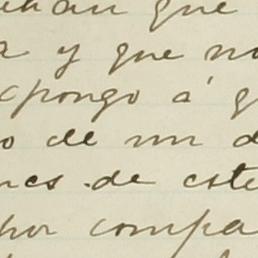 que
y que no
pongo á q
o de un d
nes de este
por compa